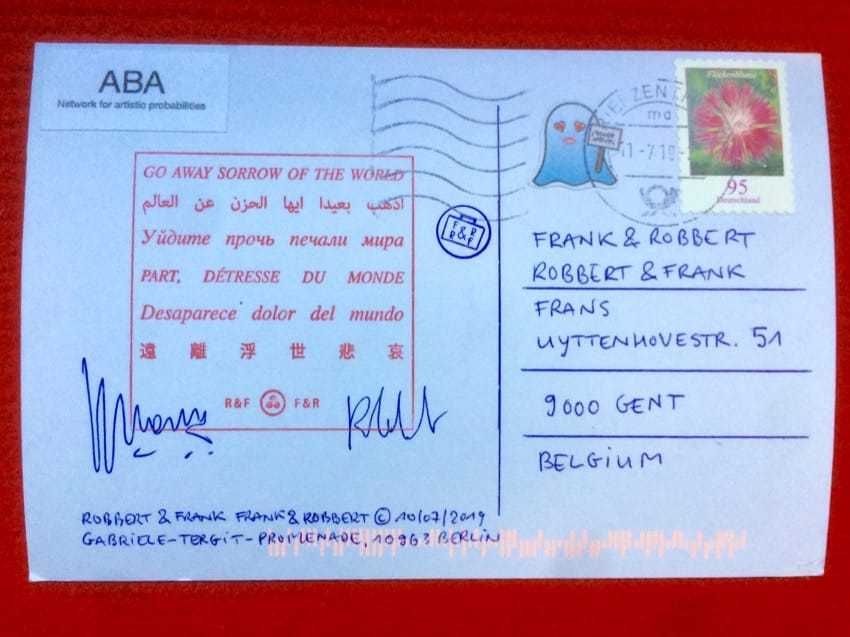 ABA
Network for artistic probabilities
GO AWAY SORROW OF THE WORLD
اذهب بعيدا ايها الحزن عن العالم
Уйдите прочь печали мира
PART, DÉTRESSE DU MONDE
Desaparece dolor del mundo
遠離浮世悲哀
R&F F&R
F&R
R&F
Flockenblume
95
Deutschland
FRANK & ROBBERT
ROBBERT & FRANK
FRANS
UYTTENHOVESTR. 51
9000 GENT
BELGIUM
ROBBERT & FRANK FRANK & ROBBERT © 10/07/2019
GABRIELE-TERGIT-PROMENADE, 10963 BERLIN